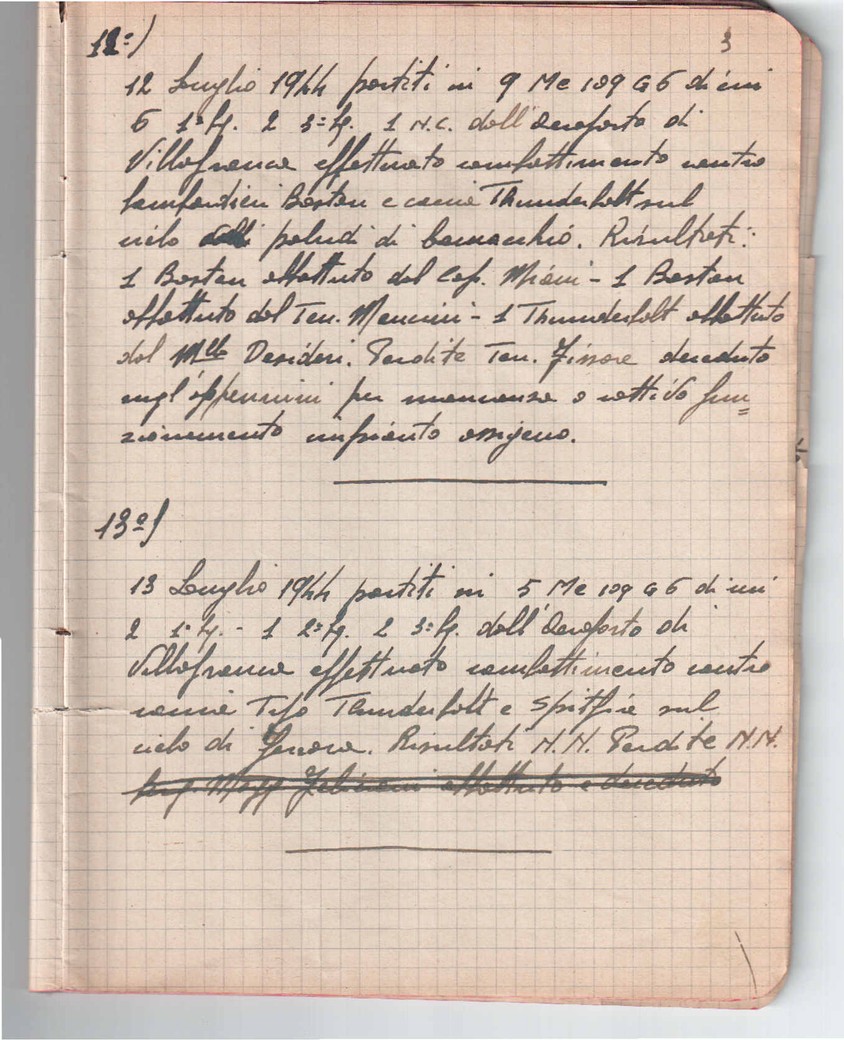 3
12º)
12 Luglio 1944 partiti in 9 Me 109 G 6 di cui
6 1ª Sq. 2 3ª Sq. 1 N.C. dall'aeroporto di
Villafranca effettuato combattimento contro
bombardieri Boston e caccia Thunderbolt sul
cielo paludi di Comacchio. Risultati:
1 Boston abbattuto dal Cap. Miani - 1 Boston
abbattuto dal Ten. Mancini - 1 Thunderbolt abbattuto
dal M.llo Desideri. Perdite Ten. Fissore deceduto
sugl'appennini per mancanza o cattivo fun=
zionamento impianto ossigeno.
13º)
13 Luglio 1944 partiti in 5 Me 109 G 6 di cui
2 1ª Sq. - 1 2ª Sq. 2 3ª Sq. dall'aeroporto di
Villafranca effettuato combattimento contro
caccia Tipo Thunderbolt e Spitfire sul
cielo di Genova. Risultati N.N. Perdite N.N.
Serg. Magg. abbattuto e deceduto